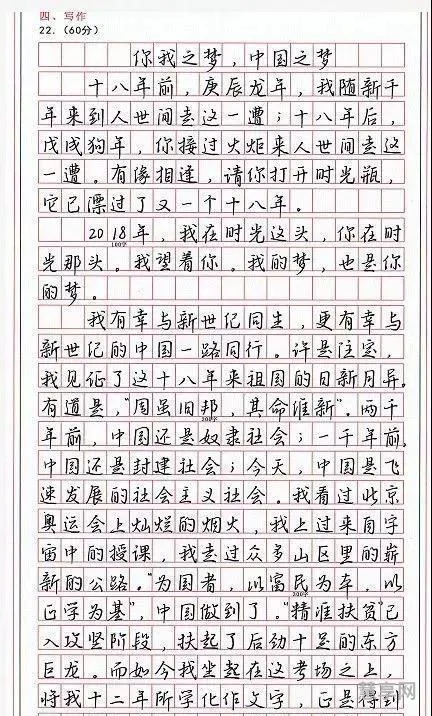 四、写作
22.（60分）
你我之梦，中国之梦
十八年前，庚辰龙年，我随新千
年来到人世间去这一遭；十八年后，
戊戌狗年，你接过火炬来人世间去这
一遭。有缘相逢，请你打开时光瓶，
它已漂过了又一个十八年。
2018年，我在时光这头，你在时
100字
光那头。我望着你。我的梦，也是你
的梦。
我有幸与新世纪同生，更有幸与
新世纪的中国一路同行。许是注定，
我见证了这十八年来祖国的日新月异。
有道是，“周虽旧邦，其命维新”。两千
200字
年前，中国还是奴隶社会；一千年前，
中国还是封建社会；今天，中国是飞
速发展的社会主义社会。我看过北京
奥运会上灿烂的烟火，我上过来自宇
宙中的授课，我走过众多山区里的崭
新的公路。“为国者，以富民为本，以
正学为基”，中国做到了。“精准扶贫”已
300字
入攻坚阶段，扶起了后劲十足的东方
巨龙。而如今我坐起在这考场之上，
将我十二年所学化作文字，正是得到